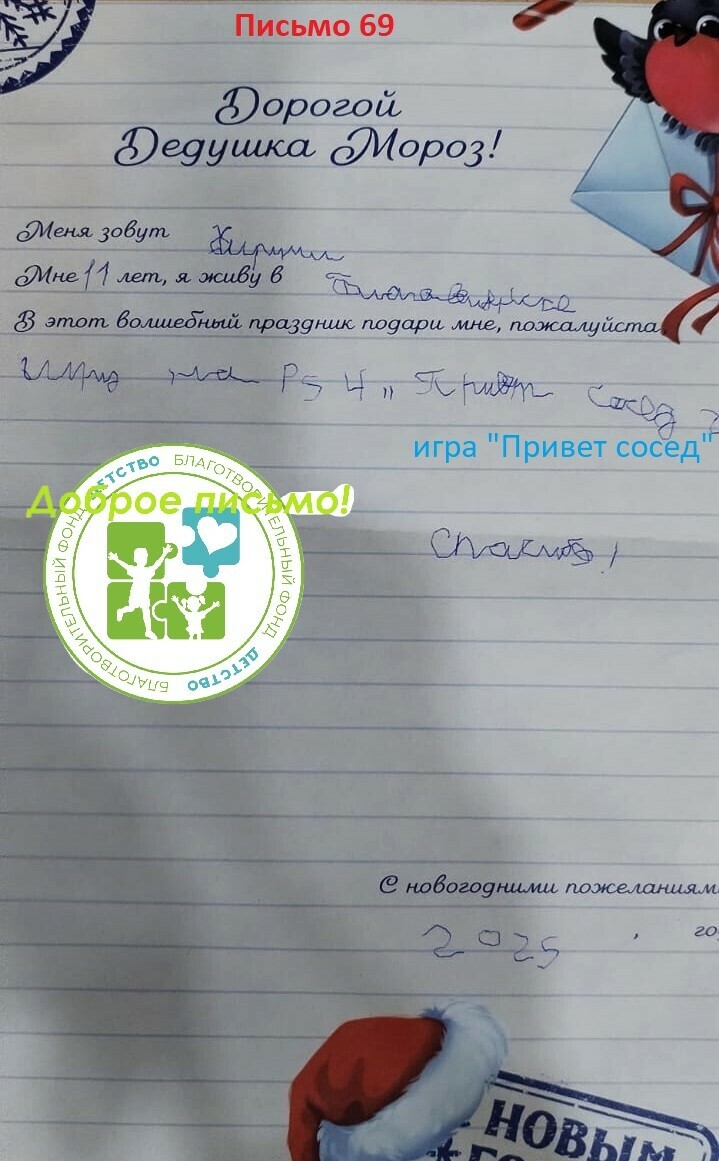 Письмо 69
Дорогой
Дедушка Мороз!
Меня зовут Кирилл
Мне 11 лет, я живу в
В этот волшебный праздник подари мне, пожалуйста,
на PS 4 „ Привет сосед
игра "Привет сосед"
Доброе письмо!
БЛАГОТВОРИТЕЛЬНЫЙ ФОНД ДЕТСТВО БЛАГОТВОРИТЕЛЬНЫЙ ФОНД ДЕТСТВО
Спасибо!
С новогодними пожеланиями
2025 , го
НОВЫМ